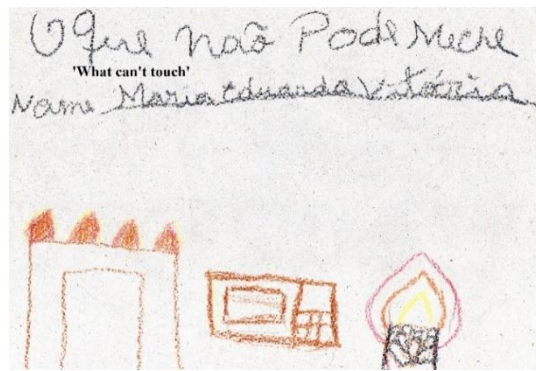 O que não Pode Meche
'What can't touch'
Nome Maria Eduarda Vitória